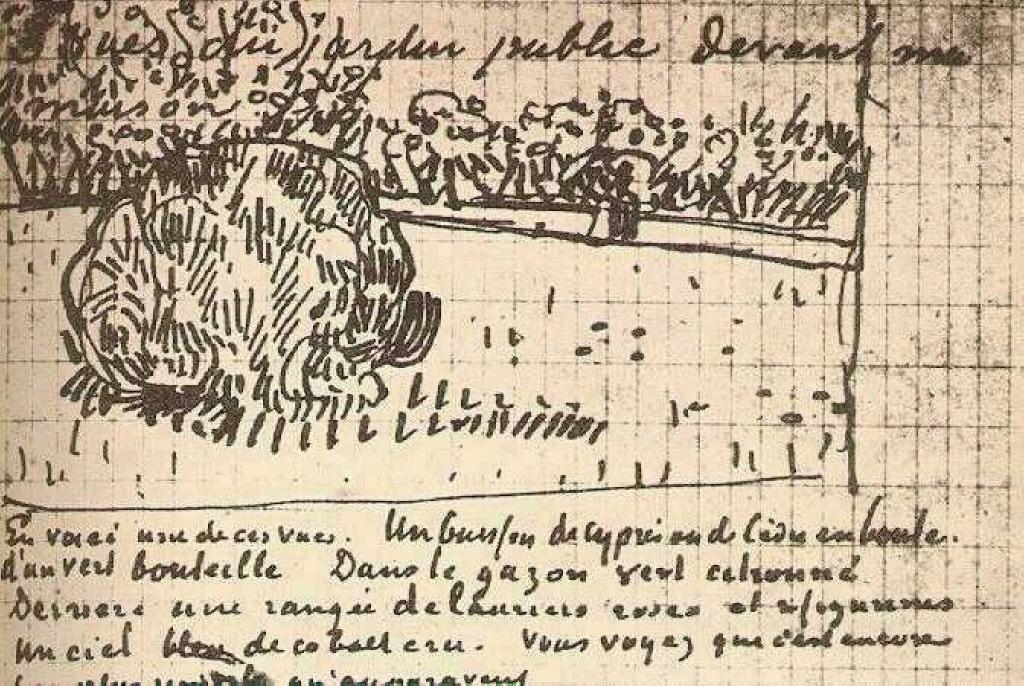 vues du jardin public devant ma
maison
En voici une de ces vues. Un buisson de cyprès ou de cèdre en boule.
d'un vert bouteille Dans le gazon vert citronné
Derriere une rangée de lauriers roses et
un ciel bleu de cobalt cru. Vous voyez que c'est encore
plus qu'auparavant